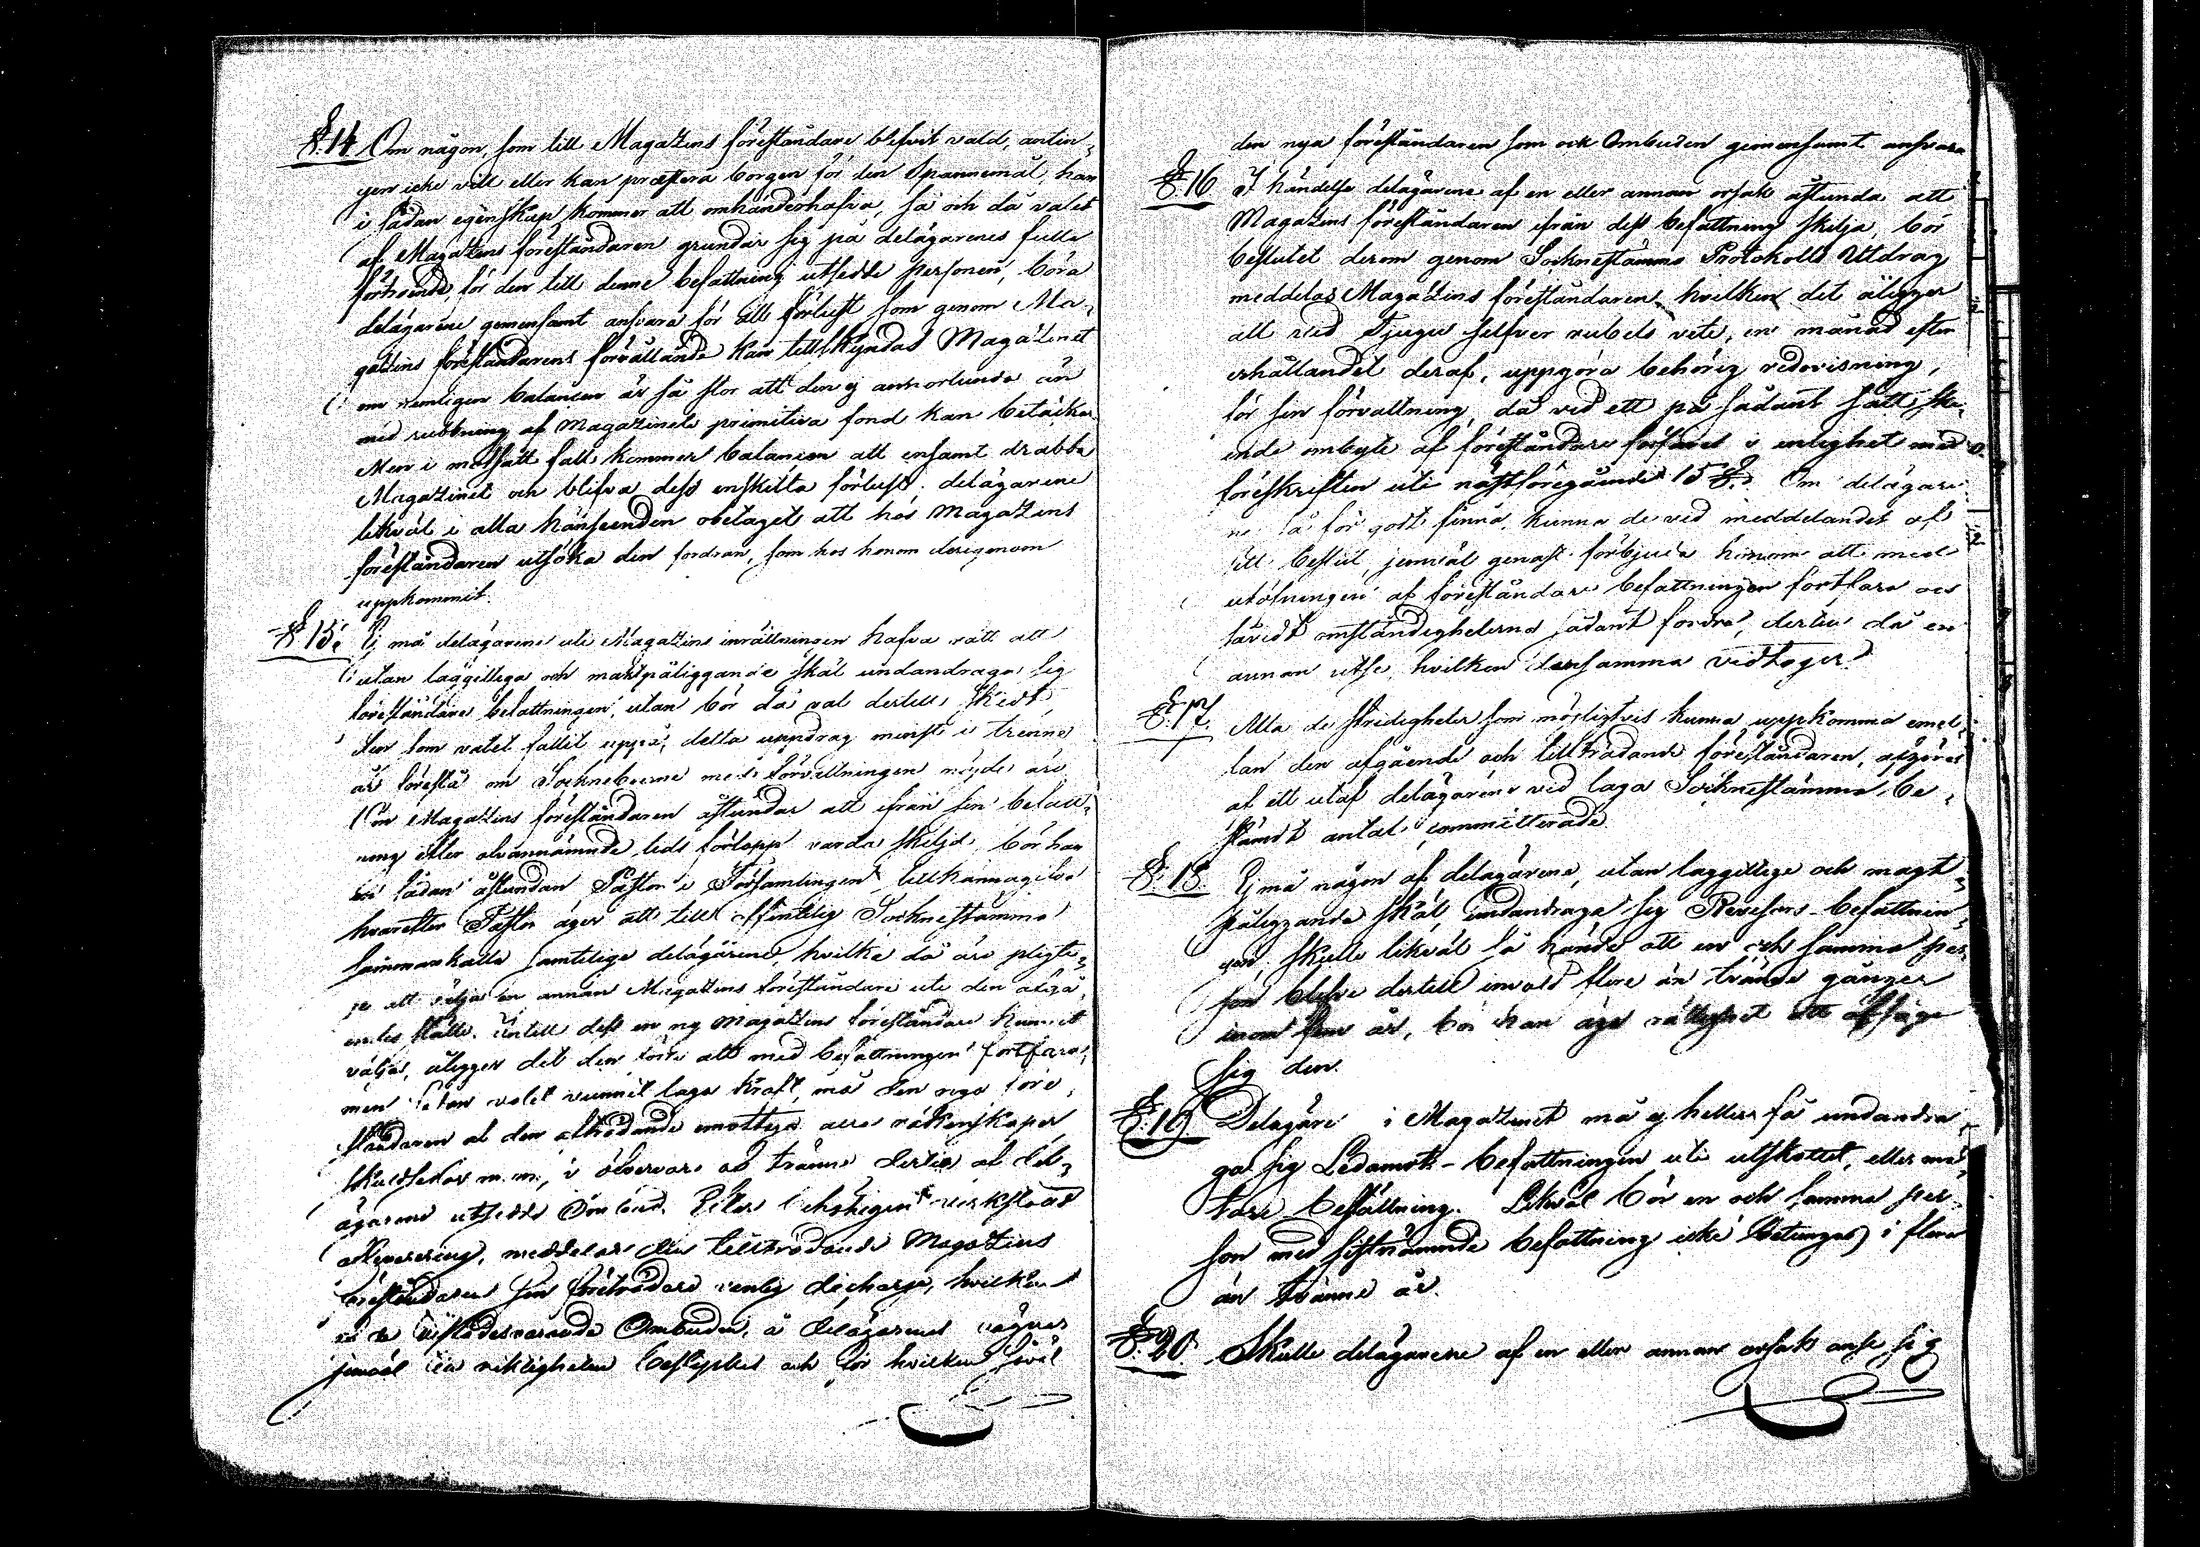 §.14 Om någon, som till Magazins föreståndare blifvit vald, antin-
gen icke vill eller kan præstera borgen för den Spannemål, han
i sådan egenskap kommer att omhänderhafva, så och då valet
af Magazins föreståndaren grundar sig på delägarenes fulla
förtroende för den till denne befattning utsedde personen, böra
delägarene gemensamt ansvara för all förlust som genom Ma-
gazins föreståndarens förvållande kan tillskyndas Magazinet
om nemligen balancen är så stor att den ej annorlunda än
med rubbning af Magazinets primitiva fond kan betäckas.
Men i motsatt fall kommer balancen att ensamt drabba
Magazinet och blifva dess enskilta förlust. delägarene
likväl i alla hänseenden obetaget att hos Magazins
föreståndaren utsöka den fordran, som hos honom derigenom
uppkommit.
§.15. Ej må delägarene uti Magazins inrättningen hafva rätt att
utan laggittiga och maktpåliggande skäl undandraga sig
föreståndare befattningen, utan bör då val dertill skedt,
den som valet fallit uppå, detta uppdrag minst i trenne
år förestå om Sockneboerne med förvaltningen nöjde äro
Om Magazins föreståndaren åstundar att ifrån sin befatt-
ning efter ofvannämnde tids förlopp varda skiljd, bör han
sådan åstundan Pastor i Församlingen tillkännagifva
hvarefter Pastor äger att till offentelig Socknestämma
sammankalla samtelige delägarene, hvilka då äro pligti-
ge att välja en annan Magazins föreståndare uti den afgå-
endes ställe. Intill dess en ny Magazins föreståndare hunnit
väljas, åligger det den förre att med befattningen fortfara,
men sedan valet vunnit laga kraft, må den nya före-
ståndaren af den afträdande emottaga alla räkenskaper
skuldsedlar m.m., i öfvervaro af tränne dertill af del-
ägarene utsedde Ombud. Efter behörigen verkstäld
Liquering, meddelar den tillträdande Magazins
föreståndaren sin företrädare vanlig decharge, hvilken
tillstädesvarande Ombuden, å delägarenes vägnar
jemväl till riktigheten bestyrkes och för hvilken såväl
den nya föreståndaren som ock Ombuden gemensamt ansvara
§.16 I händelse delägarene af en eller annan orsak åstunda att
Magazins föreståndaren ifrån dess befattning skilja, bör
beslutet derom genom Socknestämmo Protokolls Utdrag
meddelas Magazins föreståndaren, hvilken det åligger
att vid Tjugu silfver rubels vite, en månad efter
erhållandet deraf, uppgöra behörig redovisning,
för sin förvaltning, då vid ett på sådant sätt ske-
ende ombyte af föreståndare förfares i enlighet med
föreskriften uti nästföregående 15 §. Om delägare-
ne så för godt finna, kunna de vid meddelandet af
sitt beslut, jemväl genast förbjuda honom att med
utöfningen af föreståndare befattningen fortfara och
såvidt omständigheterna sådant fordra, dertill då en
annan utse, hvilken densamma vidtager.
§.17. Alla de stridigheter som möjligtvis kunna uppkomma emel-
lan den afgående och tillträdande föreståndaren, afgöres
af ett utaf delägarene vid laga Socknestämma be-
stämdt antal committerade.
§.18. Ej må någon af delägarene, utan laggittige och magt-
påliggande skäl, undandraga sig Revisors-befattnin-
gen, skulle likväl så hända att en och samma per-
son blefve dertill invald flere än tränne gånger
inom fem år, bör han äga rättighet att afsäga
sig den.
§.19. Delägare i Magazinet må ej heller få undandra-
ga sig Ledamots-befattningen uti utskottet, eller mä-
tare beställning. Likväl bör en och samma per-
son med sistnämnde befattning icke betungas i flera
än tränne år.
§.20. Skulle delägarene af en eller annan orsak anse sig